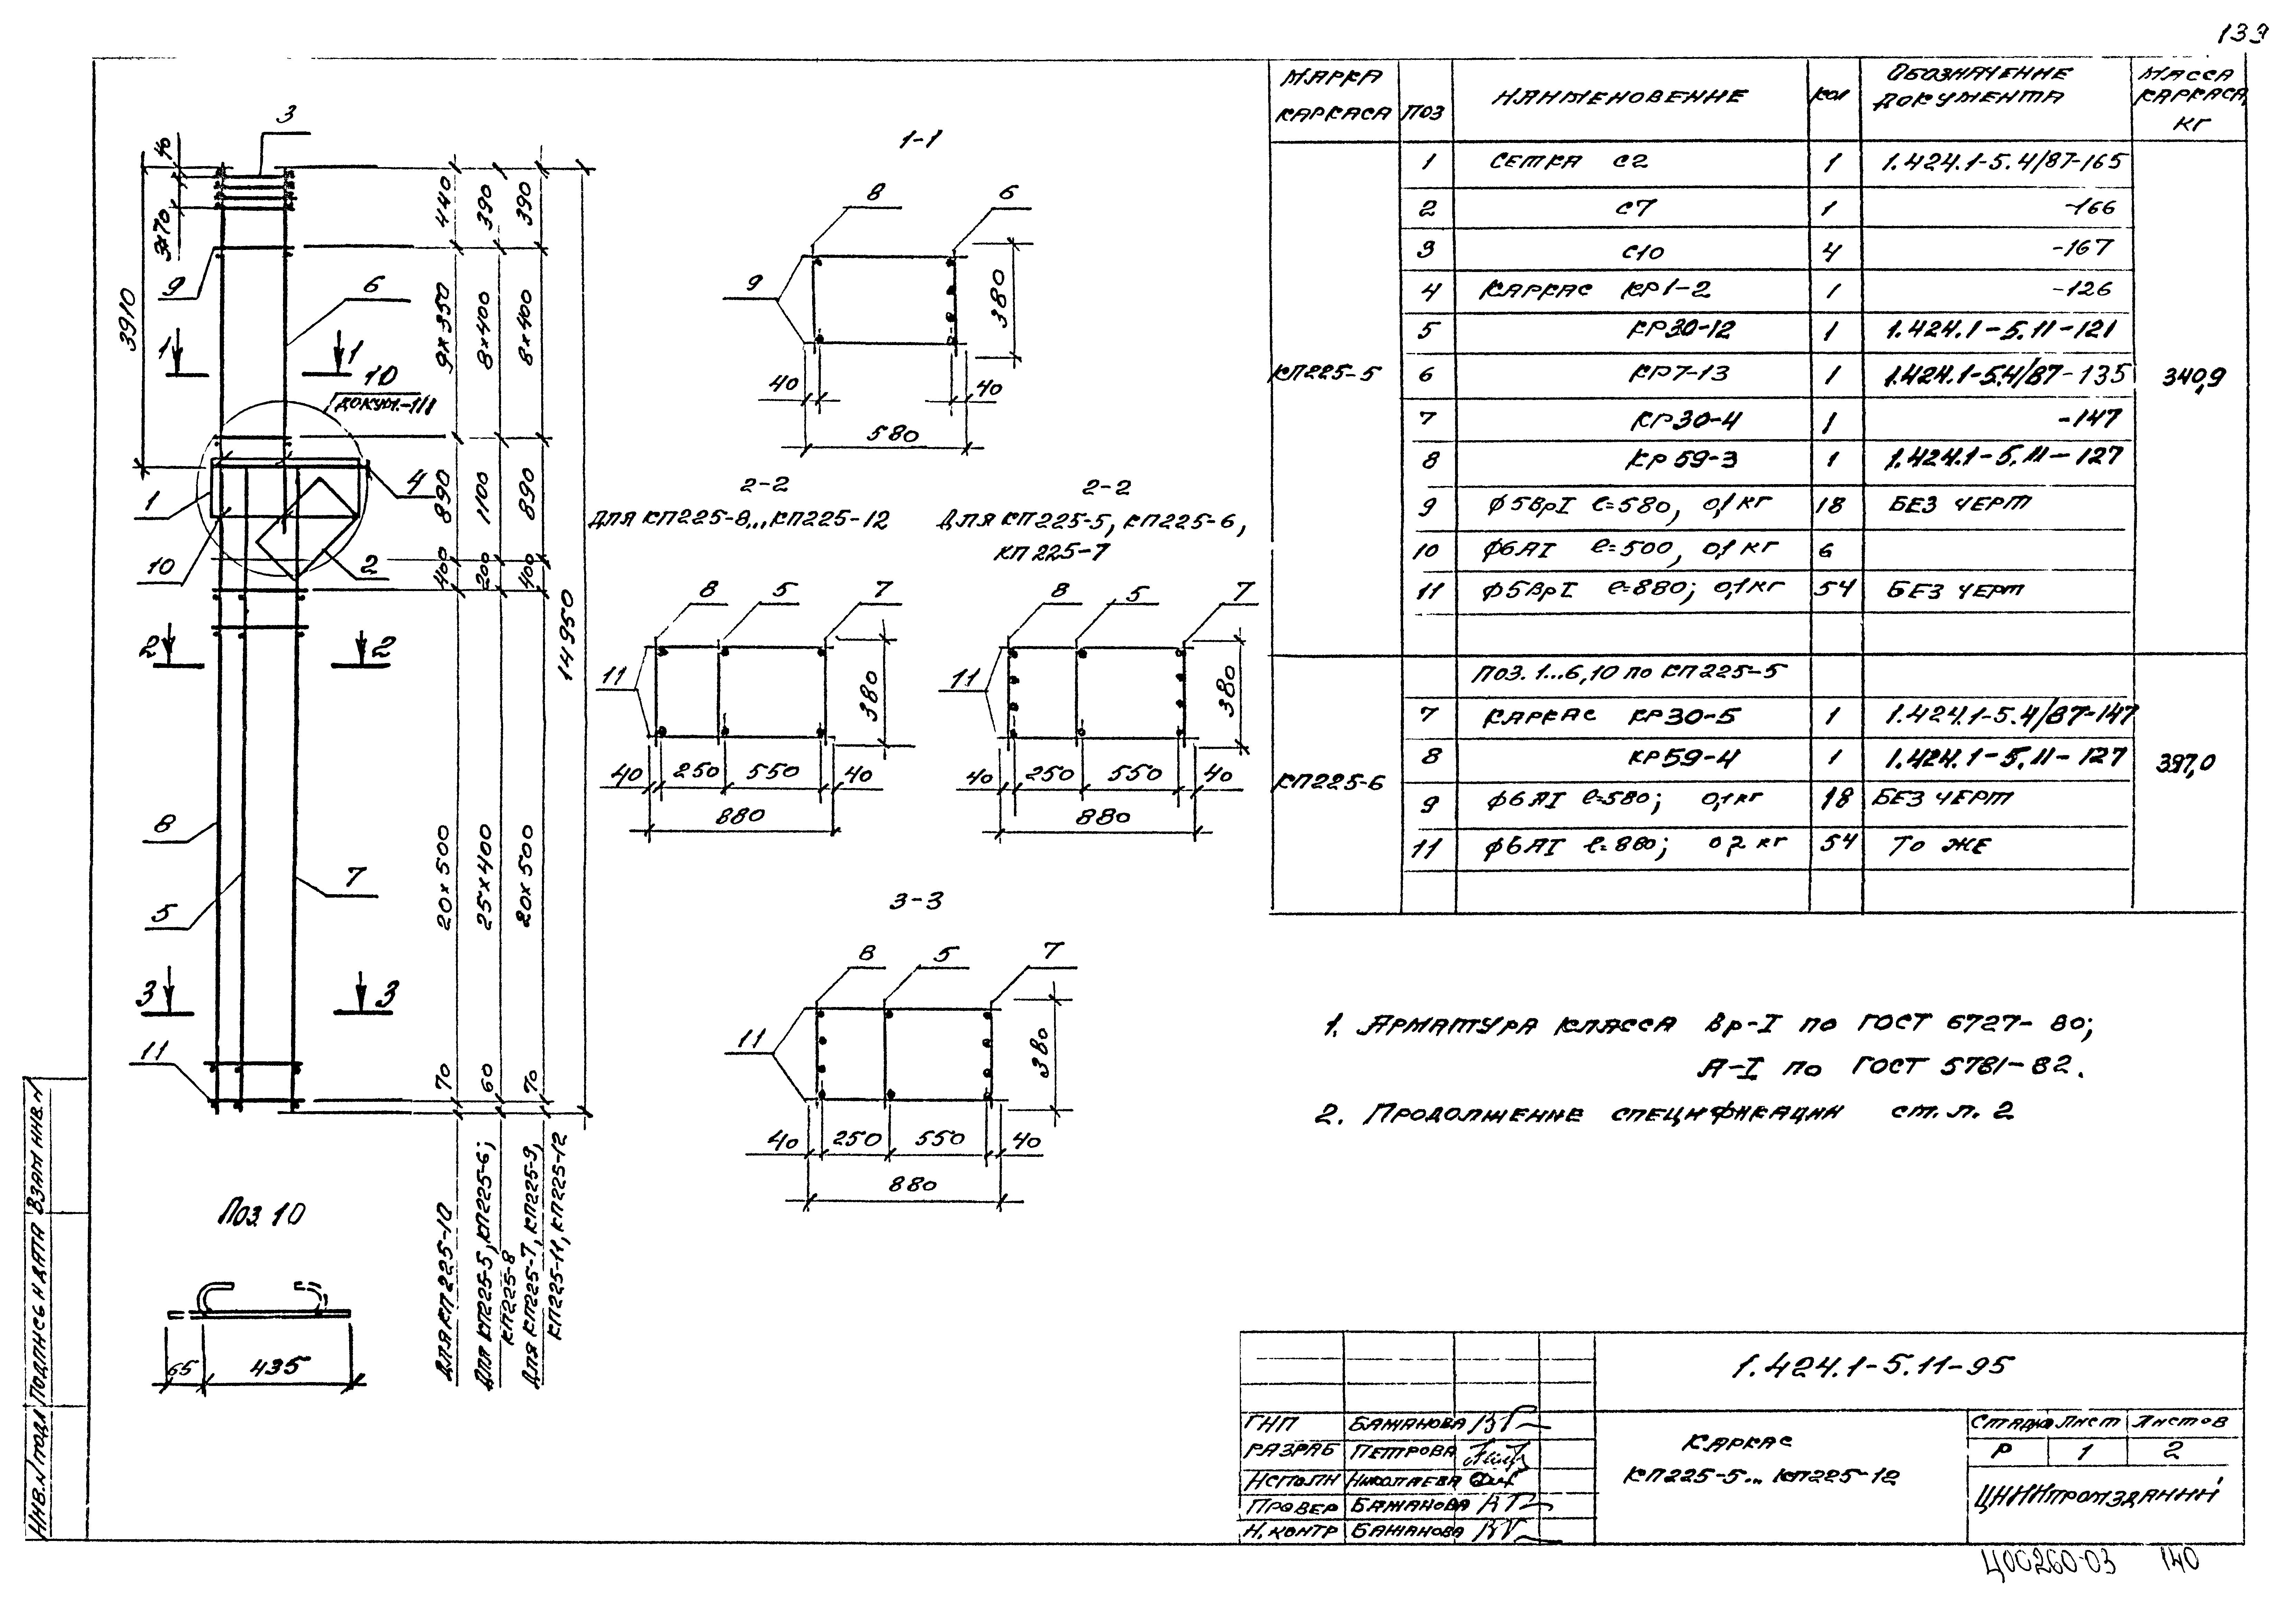 139
3
40
3х70
3910
9
6
1 1
10
ДОКУМ.-111
1
4
10
2
2 2
8
5
7
3 3
11
440
9×350
890
400
20×500
70
390
8×400
1100
200
25×400
60
390
8×400
890
400
20×500
70
14950
ДЛЯ КП225-10
ДЛЯ КП225-5, КП225-6;
КП225-8
ДЛЯ КП225-7, КП225-9,
КП225-11, КП225-12
ПОЗ. 10
65 435
1-1
8 6
9
380
40 40
580
2-2
ДЛЯ КП225-8...КП225-12
8 5 7
11
380
40 250 550 40
880
2-2
ДЛЯ КП225-5, КП225-6,
КП225-7
8 5 7
11
380
40 250 550 40
880
3-3
8 5 7
11
380
40 250 550 40
880
МАРКА КАРКАСА ПОЗ НАИМЕНОВЕНИЕ КОЛ ОБОЗНАЧЕНИЕ ДОКУМЕНТА МАССА КАРКАСА, КГ
КП225-5 340,9
1 СЕТКА С2 1 1.424.1-5.4/87-165
2 С7 1 -166
3 С10 4 -167
4 КАРКАС КР1-2 1 -126
5 КР30-12 1 1.424.1-5.11-121
6 КР7-13 1 1.424.1-5.4/87-135
7 КР30-4 1 -147
8 КР59-3 1 1.424.1-5.11-127
9 Ф5ВрI ℓ=580, 0,1 кг 18 БЕЗ ЧЕРТ
10 Ф6АI ℓ=500, 0,1 кг 6
11 Ф5ВрI ℓ=880; 0,1 кг 54 БЕЗ ЧЕРТ
КП225-6 397,0
ПОЗ. 1...6, 10 по КП225-5
7 КАРКАС КР30-5 1 1.424.1-5.4/87-147
8 КР59-4 1 1.424.1-5.11-127
9 Ф6АI ℓ=580; 0,1 кг 18 БЕЗ ЧЕРТ
11 Ф6АI ℓ=880; 0,2 кг 54 ТО ЖЕ
1. АРМАТУРА КЛАССА Вр-I по ГОСТ 6727-80;
А-I по ГОСТ 5781-82.
2. ПРОДОЛЖЕНИЕ СПЕЦИФИКАЦИИ см. л. 2
1.424.1-5.11-95
ГИП БАЖАНОВА
РАЗРАБ ПЕТРОВА
ИСПОЛН НИКОЛАЕВА
ПРОВЕР БАЖАНОВА
Н. КОНТР БАЖАНОВА
КАРКАС
КП225-5... КП225-12
СТАДИЯ ЛИСТ ЛИСТОВ
Р 1 2
ЦНИИПРОМЗДАНИЙ
ИНВ. N ПОДЛ ПОДПИСЬ И ДАТА ВЗАМ ИНВ. N
Ц00260-03 140